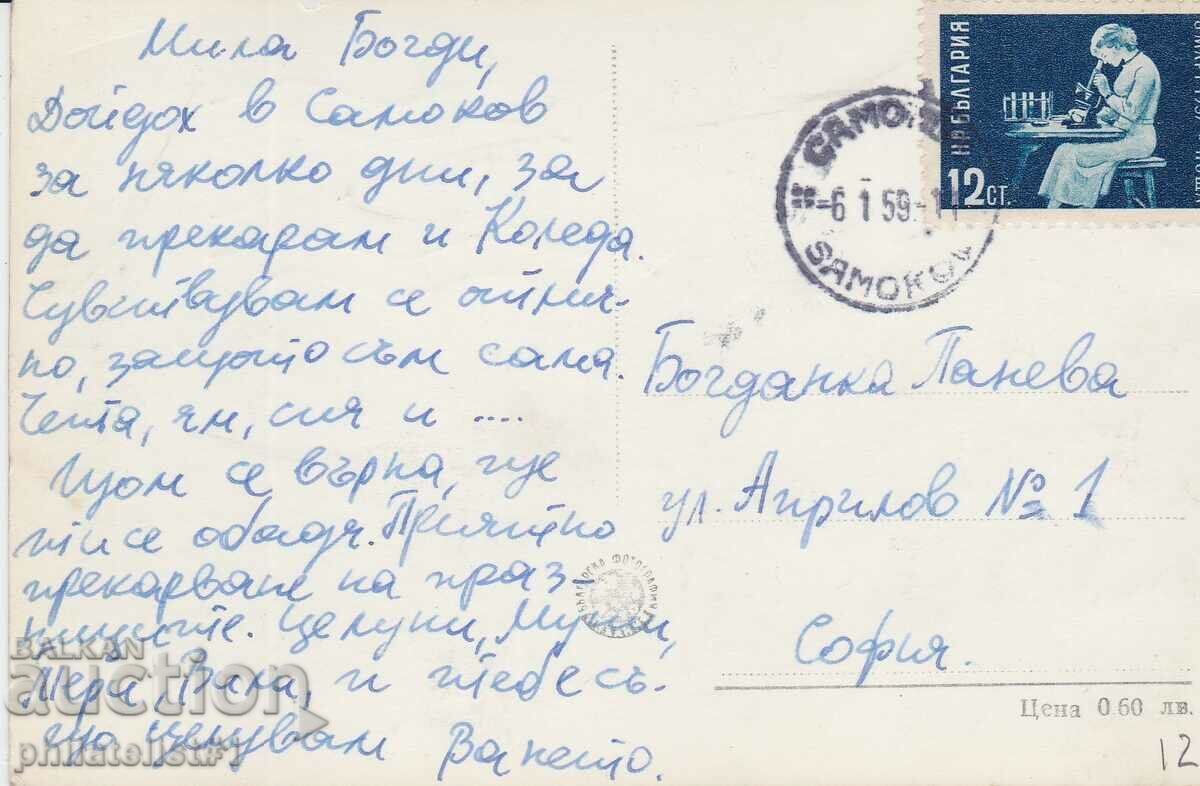 Мила Богди,
Дойдох в Самоков
за няколко дни, за
да прекарам и Коледа.
Чувствувам се отлич-
но, защото съм сама.
Чета, ям, спя и ....
Щом се върна, ще
ти се обадя. Приятно
прекарване на праз-
ниците. Целуни,
и тебе съ-
що целувам Ването.
НР БЪЛГАРИЯ
12 СТ.
САМОКОВ
-6 1 59.-11
SAMOKOV
Богданка Панева
ул. Априлов № 1
София.
БЪЛГАРСКА ФОТОГРАФИЯ
Цена 0.60 лв.
12
BALKAN
auction
philatelist#1